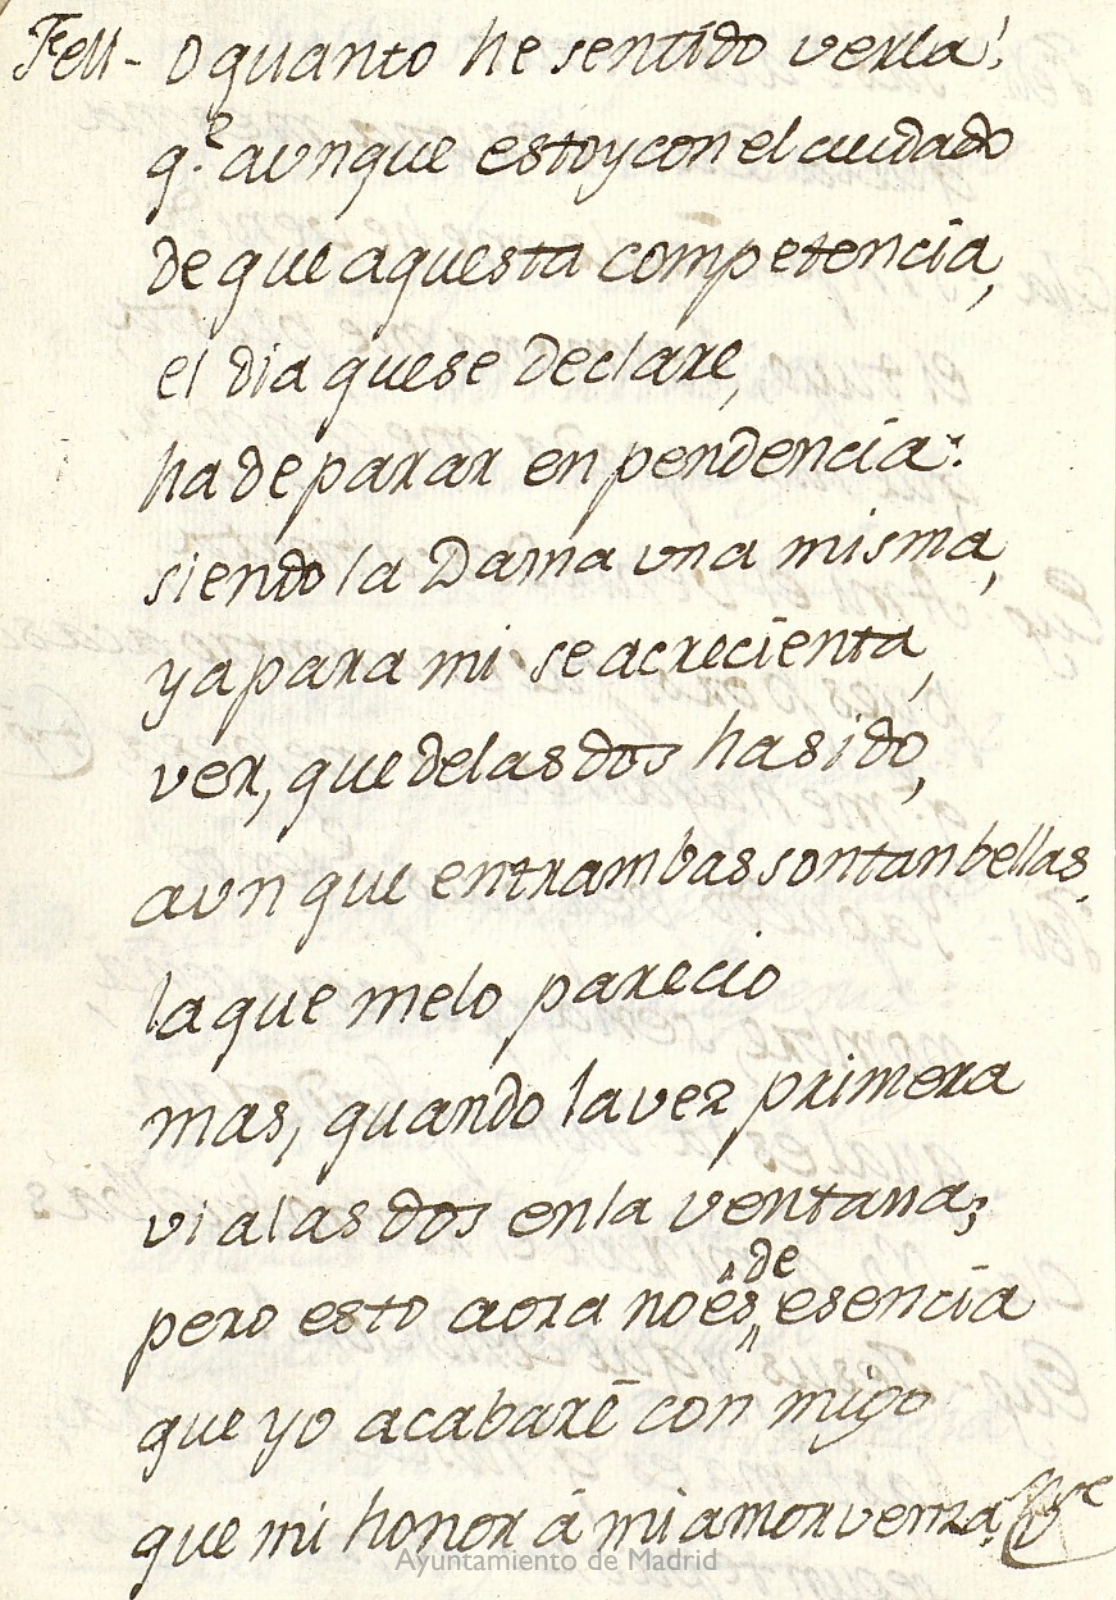 Fell- O quanto he sentido verla!
q.e aunque estoy con el cuidado
de que aquesta competencia,
el dia que se declare,
ha de parar en pendencia:
siendo la Dama una misma,
ya para mi se acrecienta,
ver, que de las dos ha sido,
aunque entrambas son tan bellas.
la que me lo parecio
mas, quando la vez primera
vi a las dos en la ventana;
pero esto aora no ês de esencia
que yo acabarè con migo
que mi honor á mi amor venza,
Ayuntamiento de Madrid